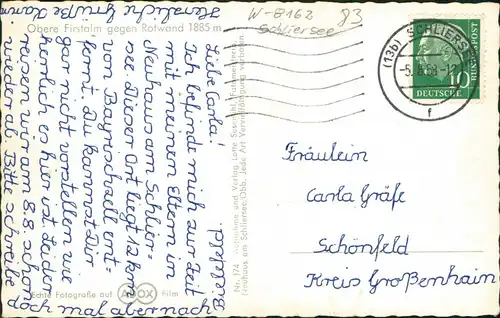 Obere Firstalm gegen Rotwand 1885 m
W-8162
Schliersee
83
(13b) SCHLIERSEE
f
DEUTSCHE BUNDESPOST
10
Liebe Carla!
Ich befinde mich zur Zeit
mit meinen Eltern in
Neuhaus am Schlier-
see. Dieser Ort liegt 12 km
von Bayrischzell ent-
fernt. Du kannst Dir
gar nicht vorstellen wie
herrlich es hier ist. Leider
reisen wir am 8.8. schon
wieder ab. Bitte schreibe
doch mal aber nach
Herzliche Grüße
Fräulein
Carla Gräfe
Schönfeld
Kreis Großenhain
Nr. 174
Neuhaus am Schliersee/Obb. Jede Art Vervielfältigung verboten
Echte Fotografie auf ADOX Film